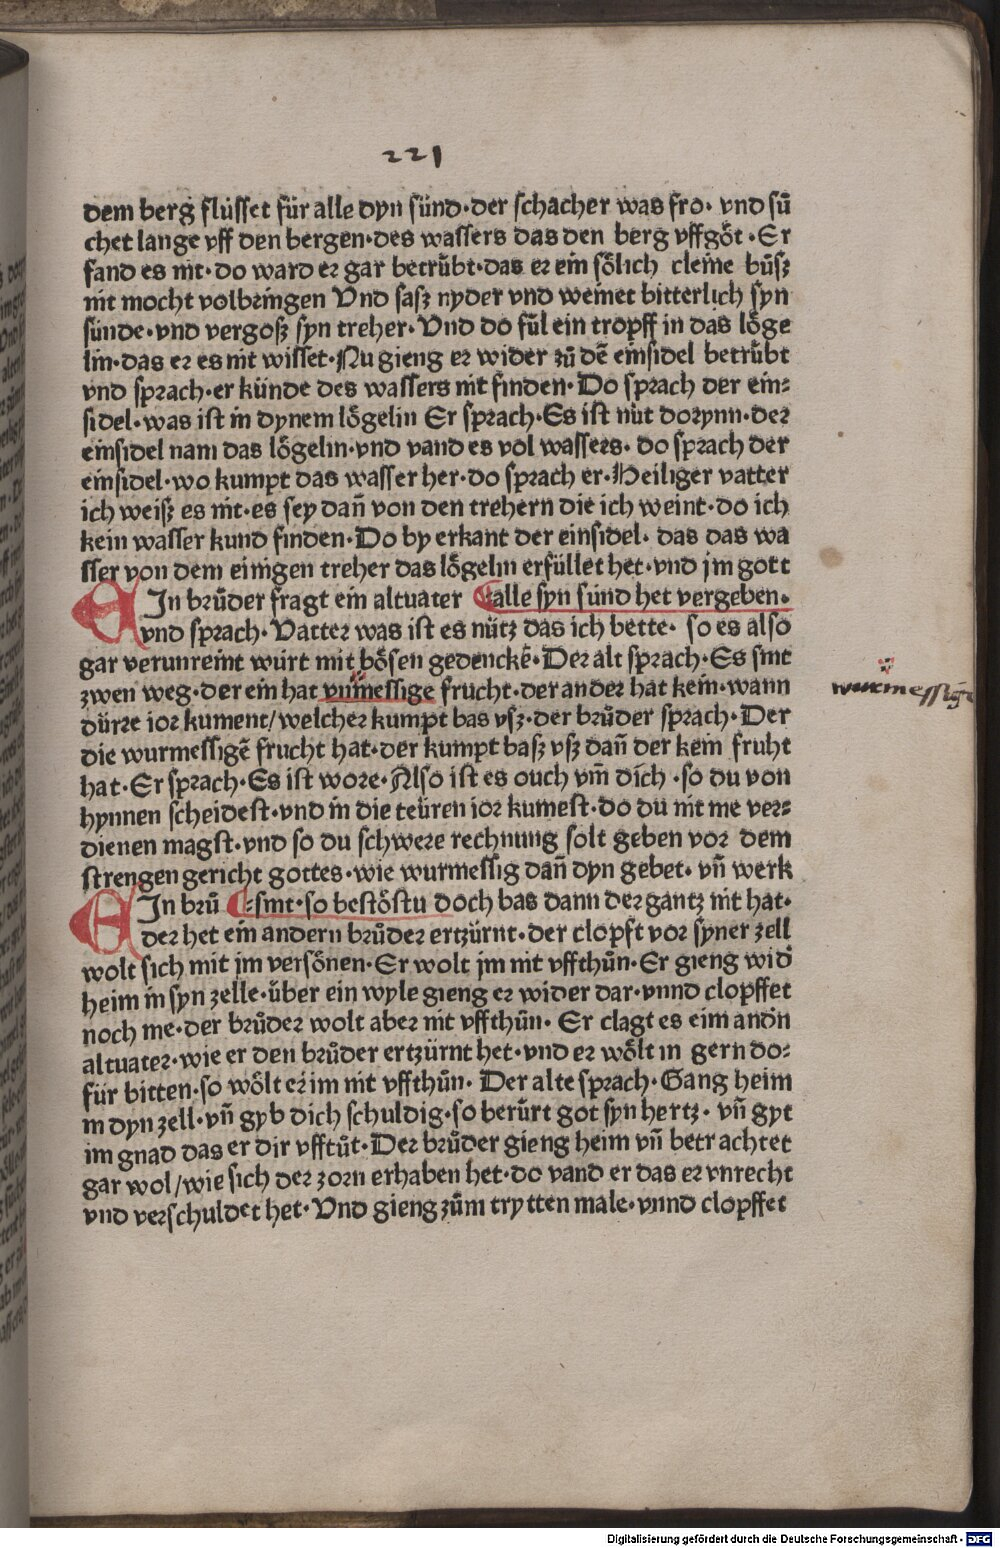 221
dem berg flüsset für alle dyn sünd·der schacher was fro· vnd sů
chet lange vff den bergen·des wassers das den berg vffgöt·Er
fand es nit·do ward er gar betrůbt·das er ein sölich cleine bůsz
nit mocht volbringen Vnd sasz nyder vnd weinet bitterlich syn
sünde·vnd vergosz syn treher·Vnd do fůl ein tropff in das löge
lin·das er es nit wisset·Nu gieng er wider zů dē einsidel betrůbt
vnd sprach·er künde des wassers nit finden·Do sprach der ein⸗
sidel·was ist in dynem lögelin Er sprach·Es ist nüt dorynn·der
einsidel nam das lögelin·vnd vand es vol wassers·do sprach der
einsidel·wo kumpt das wasser her·do sprach er·Heiliger vatter
ich weisz es nit·es sey dañ von den trehern die ich weint·do ich
kein wasser kund finden·Do by erkant der einsidel· das das wa
sser von dem einigen treher das lögelin erfüllet het·vnd jm gott
EIn brůder fragt ein altuater ⸿alle syn sünd het vergeben·
vnd sprach·Vatter was ist es nütz das ich bette· so es also
gar verunreint würt mit bösen gedenckē·Der alt sprach·Es sint
zwen weg·der ein hat vnmessige frucht·der ander hat kein·wann
dürre ior kument/welcher kumpt bas vsz·der brůder sprach·Der
die wurmessigē frucht hat·der kumpt basz vsz dañ der kein fruht
hat·Er sprach·Es ist wore·Also ist es ouch vm̄ dich·so du von
hynnen scheidest·vnd in die teüren ior kumest·do du nit me ver⸗
dienen magst·vnd so du schwere rechnung solt geben vor dem
strengen gericht gottes·wie wurmessig dañ dyn gebet· vñ werk
EIn brů ⸿⸗sint·so bestöstu doch bas dann der gantz nit hat·
der het ein andern brůder ertzürnt·der clopft vor syner zell
wolt sich mit jm versönen·Er wolt jm nit vffthůn·Er gieng wid̄
heim in syn zelle·über ein wyle gieng er wider dar·vnnd clopffet
noch me·der brůder wolt aber nit vffthůn· Er clagt es eim and̄n
altuater·wie er den brůder ertzürnt het·vnd er wölt in gern do⸗
für bitten·so wölt er im nit vffthůn· Der alte sprach·Gang heim
in dyn zell·vñ gyb dich schuldig·so berůrt got syn hertz· vñ gyt
im gnad das er dir vfftůt·Der brůder gieng heim vñ betrachtet
gar wol/wie sich der zorn erhaben het·do vand er das er vnrecht
vnd verschuldet het·Vnd gieng zům trytten male·vnnd clopffet
wurmessige
Digitalisierung gefördert durch die Deutsche Forschungsgemeinschaft - DFG